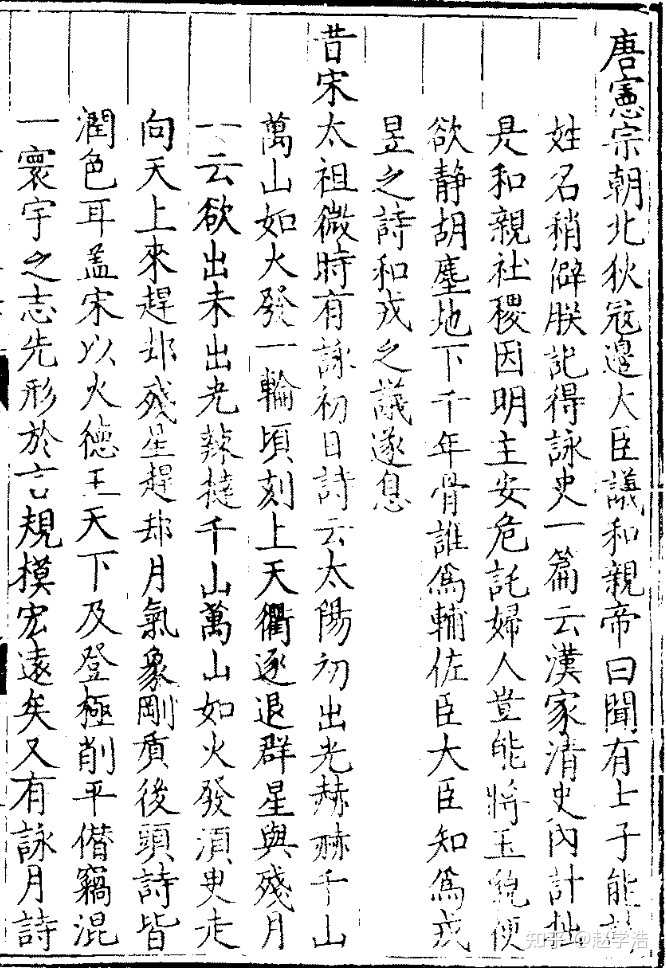 唐憲宗朝北狄冦邉大臣議和親帝曰聞有士子能詩
姓名稍僻朕記得詠史一篇云漢家清史內計拙
是和親社稷因明主安危託婦人豈能將玉貌便
欲静胡塵地下千年骨誰爲輔佐臣大臣知爲戎
昱之詩和戎之議遂息
昔宋太祖微時有詠初日詩云太陽初出光赫赫千山
萬山如火發一輪頃刻上天衢逐退群星與殘月
一云欲出未出光辣撻千山萬山如火發須臾走
向天上來趕却殘星趕却月氣象剛質後頭詩皆
潤色耳盖宋以火德王天下及登極削平僭竊混
一寰宇之志先形於言規模宏遠矣又有詠月詩
知乎 @赵学浩